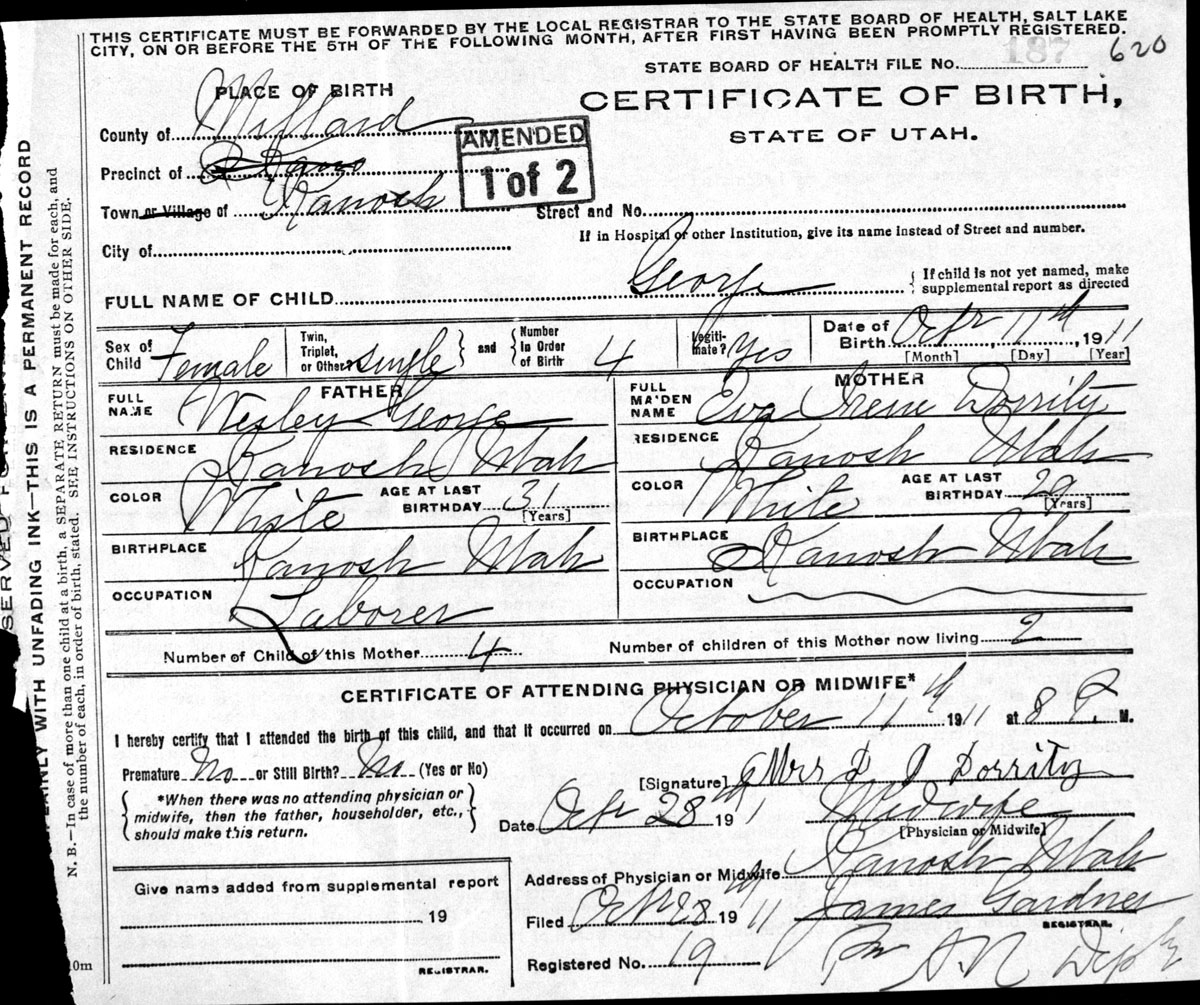 THIS CERTIFICATE MUST BE FORWARDED BY THE LOCAL REGISTRAR TO THE STATE BOARD OF HEALTH, SALT LAKE
CITY, ON OR BEFORE THE 5TH OF THE FOLLOWING MONTH, AFTER FIRST HAVING BEEN PROMPTLY REGISTERED.
187 620
STATE BOARD OF HEALTH FILE No.
PLACE OF BIRTH
CERTIFICATE OF BIRTH,
STATE OF UTAH.
County of Millard
AMENDED
1 of 2
Precinct of
Town or Village of Kanosh
Street and No.
City of
If in Hospital or other Institution, give its name instead of Street and number.
FULL NAME OF CHILD George
If child is not yet named, make
supplemental report as directed
Sex of Child Female
Twin, Triplet, or Other? single
and
Number In Order of Birth 4
Legiti-mate? Yes
Date of Birth Oct 11th, 1911
[Month] [Day] [Year]
FATHER
MOTHER
FULL NAME Wesley George
FULL MAIDEN NAME Eva Irene Dorrity
RESIDENCE Kanosh Utah
RESIDENCE Kanosh Utah
COLOR White AGE AT LAST BIRTHDAY 31 [Years]
COLOR White AGE AT LAST BIRTHDAY 29 [Years]
BIRTHPLACE Kanosh Utah
BIRTHPLACE Kanosh Utah
OCCUPATION Laborer
OCCUPATION
Number of Child of this Mother 4
Number of children of this Mother now living 2
CERTIFICATE OF ATTENDING PHYSICIAN OR MIDWIFE*
I hereby certify that I attended the birth of this child, and that it occurred on October 11th 1911 at 8 P. M.
Premature No or Still Birth? No (Yes or No)
[Signature] Mrs D J Dorrity
*When there was no attending physician or
midwife, then the father, householder, etc.,
should make this return.
Date Oct 28th 1911 Midwife
[Physician or Midwife]
Address of Physician or Midwife Kanosh Utah
Give name added from supplemental report
19
REGISTRAR.
Filed Oct 28th 1911 James Gardner
REGISTRAR.
Registered No. 19
10m
PLAINLY WITH UNFADING INK—THIS IS A PERMANENT RECORD
N. B.—In case of more than one child at a birth, a SEPARATE RETURN must be made for each, and
the number of each, in order of birth, stated. SEE INSTRUCTIONS ON OTHER SIDE.